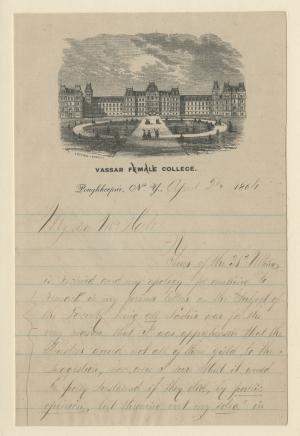 VASSAR FEMALE COLLEGE.
Poughkeepsie, N. Y., April 2 186
My dear Mrs Hale
Yours of the 28th
is rec'd and my apology for omitting to
remark in my former letter on the subject of
the Faculty being all ladies was for the
very reason that I was apprehensive that the
Trustees would not all of them yield to the
suggestion, nor am I sure that it would
be fully sustained if they did, by public
opinion, but throwing out my idea in